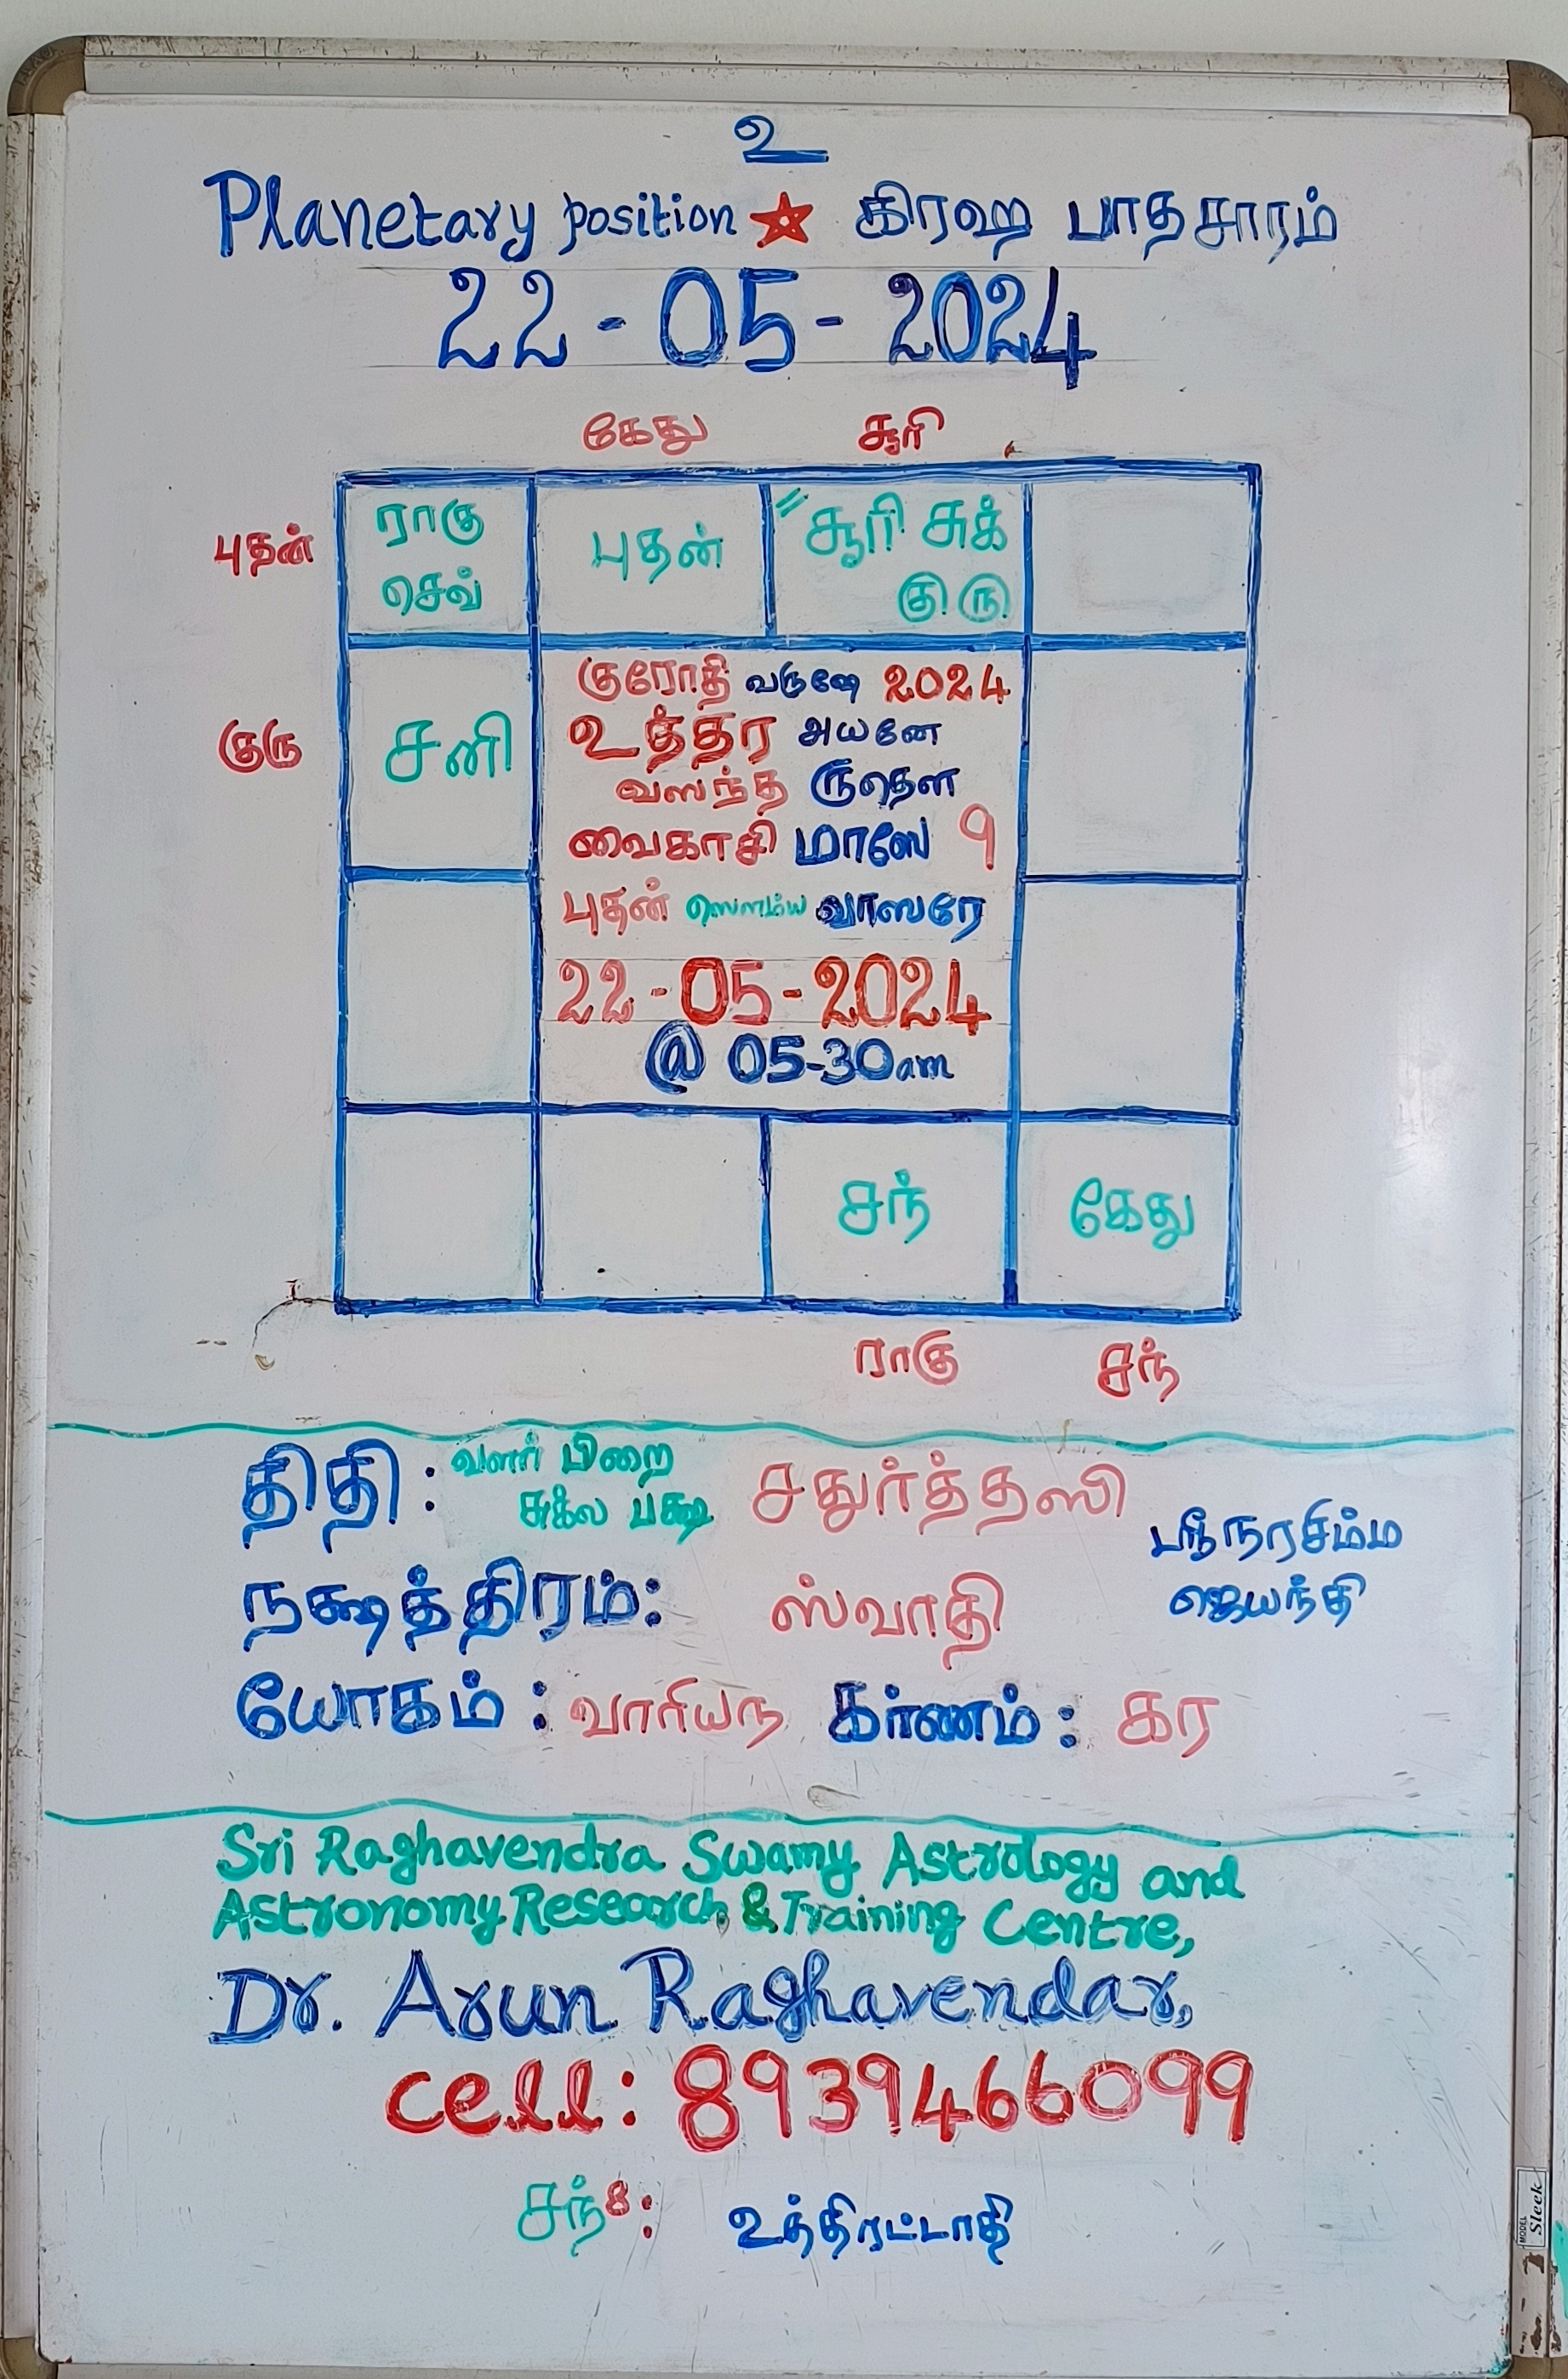 உ
Planetary position ☆ கிரஹ பாதசாரம்
22-05-2024
கேது சூரி
புதன் ராகு புதன் " சூரி சுக்
செவ் குரு
குரோதி வருஷே 2024
குரு சனி உத்தர அயனே
வஸந்த ருதௌ
வைகாசி மாஸே 9
புதன் ஸௌம்ய வாஸரே
22-05-2024
@ 05-30am
சந் கேது
ராகு சந்
திதி: வளர் பிறை
சுக்ல பக்ஷ சதுர்த்தஸி
ஸ்ரீ நரசிம்ம
ஜெயந்தி
நக்ஷத்திரம்: ஸ்வாதி
யோகம்: வாரியந கர்ணம்: கர
Sri Raghavendra Swamy Astrology and
Astronomy Research & Training Centre,
Dr. Arun Raghavendar,
cell: 8939466099
சந்8: உத்திரட்டாதி
MODEL
Sleek